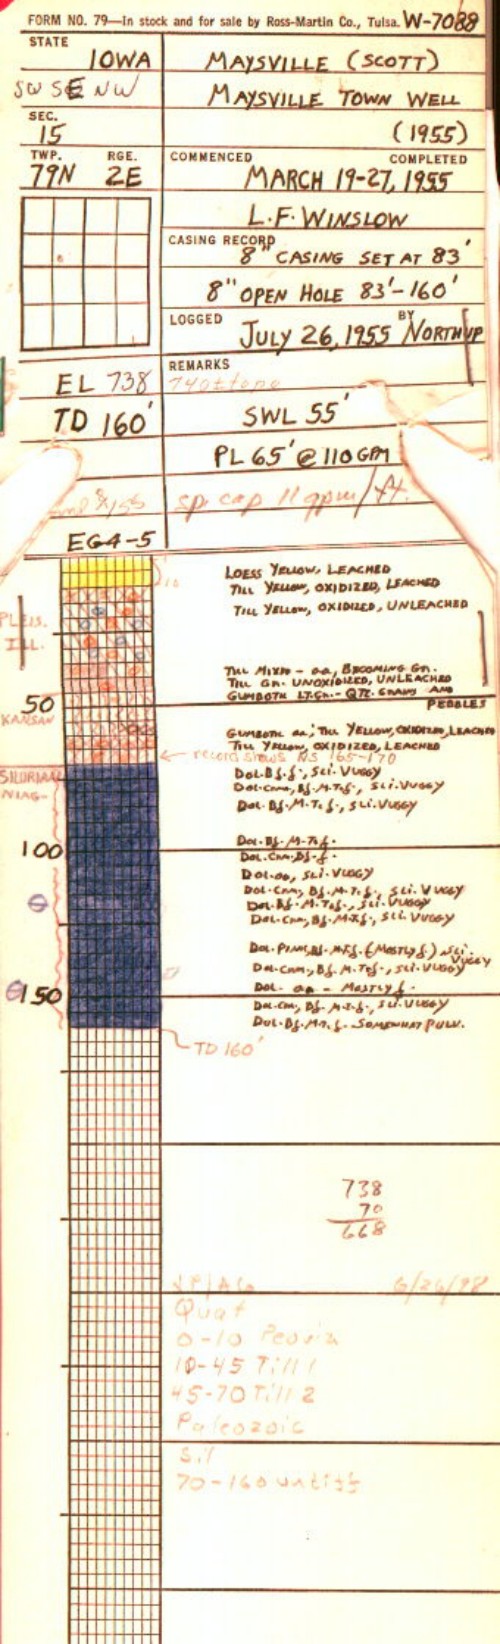 FORM NO. 79—In stock and for sale by Ross-Martin Co., Tulsa. W-7088
STATE
IOWA
MAYSVILLE (SCOTT)
SW SE NW
MAYSVILLE TOWN WELL
SEC.
15
(1955)
TWP. RGE.
79N 2E
COMMENCED COMPLETED
MARCH 19-27, 1955
L.F. WINSLOW
CASING RECORD
8" CASING SET AT 83'
8" OPEN HOLE 83'-160'
LOGGED BY
JULY 26, 1955 NORTHUP
REMARKS
EL 738
TD 160'
SWL 55'
PL 65' @ 110 GPM
sp. cap 11 gpm/ft.
EG4-5
LOESS YELLOW, LEACHED
10
TILL YELLOW, OXIDIZED, LEACHED
TILL YELLOW, OXIDIZED, UNLEACHED
PLEIS.
ILL.
TILL MIXED - aa, BECOMING GN.
TILL GN. UNOXIDIZED, UNLEACHED
GUMBOTIL LT. GN. - QTZ. GRAINS AND PEBBLES
50
KANSAN
GUMBOTIL aa; TILL YELLOW, OXIDIZED, LEACHED
TILL YELLOW, OXIDIZED, LEACHED
record shows NS 165-170
SILURIAN
NIAG-
DOL. BF. f., SLI. VUGGY
DOL. CRM, BF. M.T.f., SLI. VUGGY
DOL. BF. M.T.f., SLI. VUGGY
DOL. BF. M-T.f.
100
DOL. CRM. BF. f.
DOL. aa, SLI. VUGGY
DOL. CRM, BF. M.T.f., SLI. VUGGY
DOL. BF. M.T.f., SLI. VUGGY
DOL. CRM, BF. M.T.f., SLI. VUGGY
DOL. PINK, BF. M.T.f. (MOSTLY f.) SLI. VUGGY
DOL. CRM, BF. M.T.f., SLI. VUGGY
DOL. aa - MOSTLY f.
150
DOL. CRM, BF. M.T.f., SLI. VUGGY
DOL. BF. M.T.f. SOMEWHAT PULV.
TD 160'
738
70
668
6/26/98
Quat
0-10 Peoria
10-45 Till 1
45-70 Till 2
Paleozoic
Sil
70-160 undiff